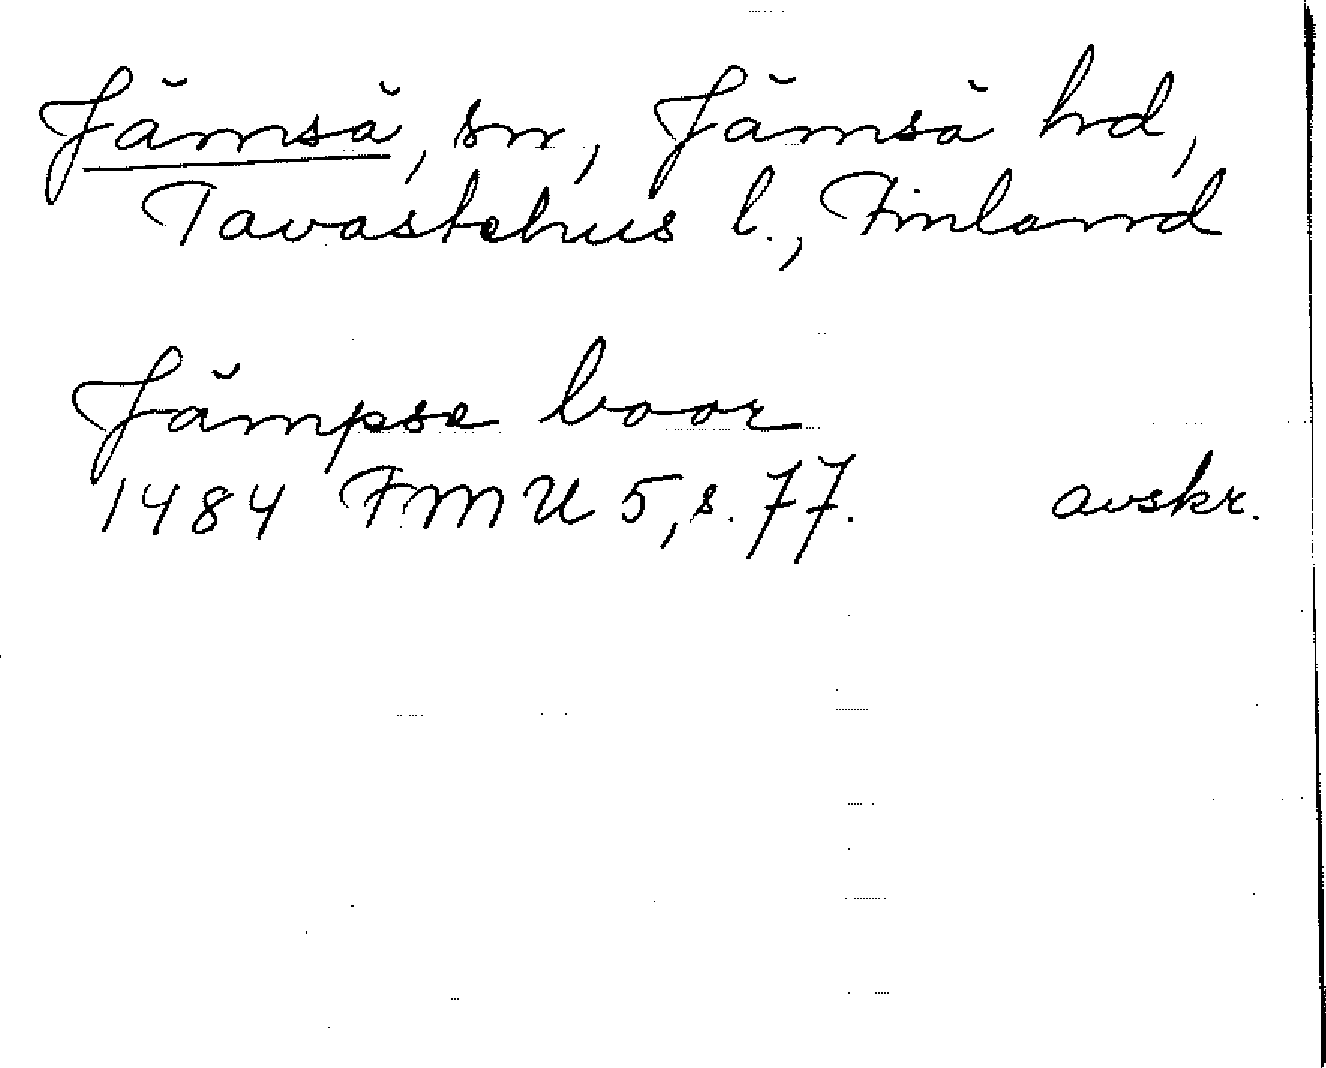 Jämsä, sn, Jämsä hd,
Tavastehus l., Finland
Jämpse boor
1484 FMU 5, s. 77. avskr.